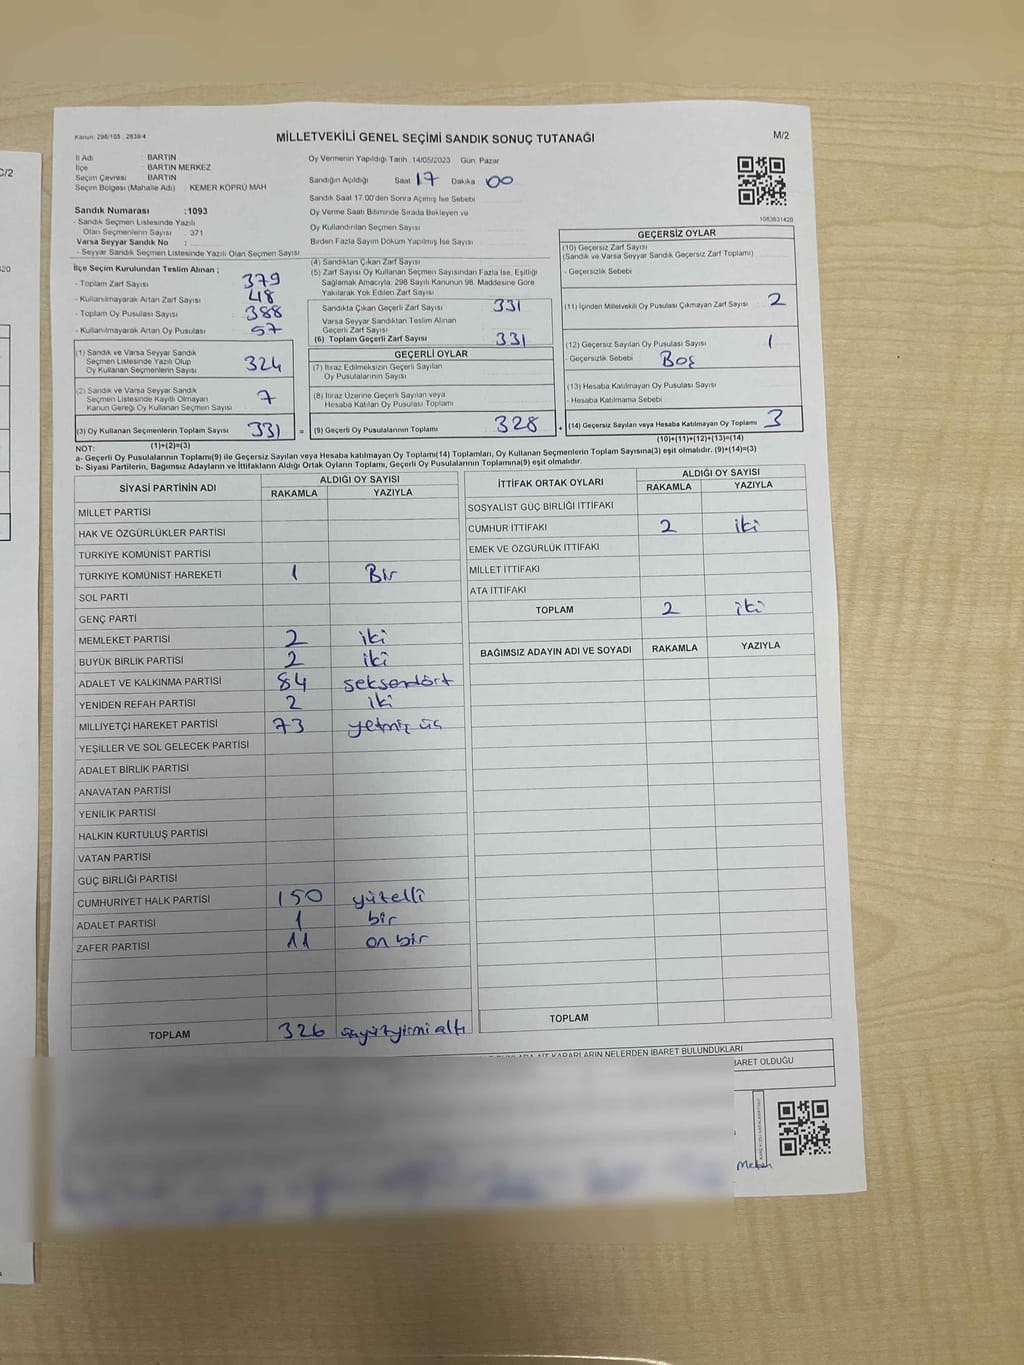 Kanun: 298/105 ; 2839/4
MİLLETVEKİLİ GENEL SEÇİMİ SANDIK SONUÇ TUTANAĞI
M/2
C/2
İl Adı : BARTIN
İlçe : BARTIN MERKEZ
Seçim Çevresi : BARTIN
Seçim Bölgesi (Mahalle Adı) : KEMER KÖPRÜ MAH
Sandık Numarası :1093
- Sandık Seçmen Listesinde Yazılı
Olan Seçmenlerin Sayısı : 371
Varsa Seyyar Sandık No :
- Seyyar Sandık Seçmen Listesinde Yazılı Olan Seçmen Sayısı :
Oy Vermenin Yapıldığı Tarih :14/05/2023 Gün: Pazar
Sandığın Açıldığı Saat 17 Dakika 00
Sandık Saat 17:00'den Sonra Açılmış İse Sebebi :
Oy Verme Saati Bitiminde Sırada Bekleyen ve
Oy Kullandırılan Seçmen Sayısı :
Birden Fazla Sayım Döküm Yapılmış İse Sayısı :
1083831420
İlçe Seçim Kurulundan Teslim Alınan ;
- Toplam Zarf Sayısı : 379
- Kullanılmayarak Artan Zarf Sayısı : 48
- Toplam Oy Pusulası Sayısı : 388
- Kullanılmayarak Artan Oy Pusulası : 57
(1) Sandık ve Varsa Seyyar Sandık
Seçmen Listesinde Yazılı Olup
Oy Kullanan Seçmenlerin Sayısı 324
(2) Sandık ve Varsa Seyyar Sandık
Seçmen Listesinde Kayıtlı Olmayan
Kanun Gereği Oy Kullanan Seçmen Sayısı 7
(3) Oy Kullanan Seçmenlerin Toplam Sayısı 331
(1)+(2)=(3)
(4) Sandıktan Çıkan Zarf Sayısı :
(5) Zarf Sayısı Oy Kullanan Seçmen Sayısından Fazla İse, Eşitliği
Sağlamak Amacıyla, 298 Sayılı Kanunun 98. Maddesine Göre
Yakılarak Yok Edilen Zarf Sayısı :
Sandıkta Çıkan Geçerli Zarf Sayısı : 331
Varsa Seyyar Sandıktan Teslim Alınan
Geçerli Zarf Sayısı :
(6) Toplam Geçerli Zarf Sayısı : 331
GEÇERLİ OYLAR
(7) İtiraz Edilmeksizin Geçerli Sayılan
Oy Pusulalarının Sayısı :
(8) İtiraz Üzerine Geçerli Sayılan veya
Hesaba Katılan Oy Pusulası Toplamı :
= (9) Geçerli Oy Pusulalarının Toplamı 328
GEÇERSİZ OYLAR
(10) Geçersiz Zarf Sayısı :
(Sandık ve Varsa Seyyar Sandık Geçersiz Zarf Toplamı)
- Geçersizlik Sebebi :
(11) İçinden Milletvekili Oy Pusulası Çıkmayan Zarf Sayısı : 2
(12) Geçersiz Sayılan Oy Pusulası Sayısı : 1
- Geçersizlik Sebebi : Boş
(13) Hesaba Katılmayan Oy Pusulası Sayısı :
- Hesaba Katılmama Sebebi :
+ (14) Geçersiz Sayılan veya Hesaba Katılmayan Oy Toplamı 3
(10)+(11)+(12)+(13)=(14)
NOT:
a- Geçerli Oy Pusulalarının Toplamı(9) ile Geçersiz Sayılan veya Hesaba katılmayan Oy Toplamı(14) Toplamları, Oy Kullanan Seçmenlerin Toplam Sayısına(3) eşit olmalıdır. (9)+(14)=(3)
b- Siyasi Partilerin, Bağımsız Adayların ve İttifakların Aldığı Ortak Oyların Toplamı, Geçerli Oy Pusulalarının Toplamına(9) eşit olmalıdır.
SİYASİ PARTİNİN ADI ALDIĞI OY SAYISI
RAKAMLA YAZIYLA
MİLLET PARTİSİ
HAK VE ÖZGÜRLÜKLER PARTİSİ
TÜRKİYE KOMÜNİST PARTİSİ
TÜRKİYE KOMÜNİST HAREKETİ 1 Bir
SOL PARTİ
GENÇ PARTİ
MEMLEKET PARTİSİ 2 iki
BÜYÜK BİRLİK PARTİSİ 2 iki
ADALET VE KALKINMA PARTİSİ 84 seksendört
YENİDEN REFAH PARTİSİ 2 iki
MİLLİYETÇİ HAREKET PARTİSİ 73 yetmiş üç
YEŞİLLER VE SOL GELECEK PARTİSİ
ADALET BİRLİK PARTİSİ
ANAVATAN PARTİSİ
YENİLİK PARTİSİ
HALKIN KURTULUŞ PARTİSİ
VATAN PARTİSİ
GÜÇ BİRLİĞİ PARTİSİ
CUMHURİYET HALK PARTİSİ 150 yüzelli
ADALET PARTİSİ 1 bir
ZAFER PARTİSİ 11 on bir
TOPLAM 326 üçyüzyirmi altı
İTTİFAK ORTAK OYLARI ALDIĞI OY SAYISI
RAKAMLA YAZIYLA
SOSYALİST GÜÇ BİRLİĞİ İTTİFAKI
CUMHUR İTTİFAKI 2 iki
EMEK VE ÖZGÜRLÜK İTTİFAKI
MİLLET İTTİFAKI
ATA İTTİFAKI
TOPLAM 2 iki
BAĞIMSIZ ADAYIN ADI VE SOYADI RAKAMLA YAZIYLA
TOPLAM
KARARLARIN NELERDEN İBARET BULUNDUKLARI
İBARET OLDUĞU